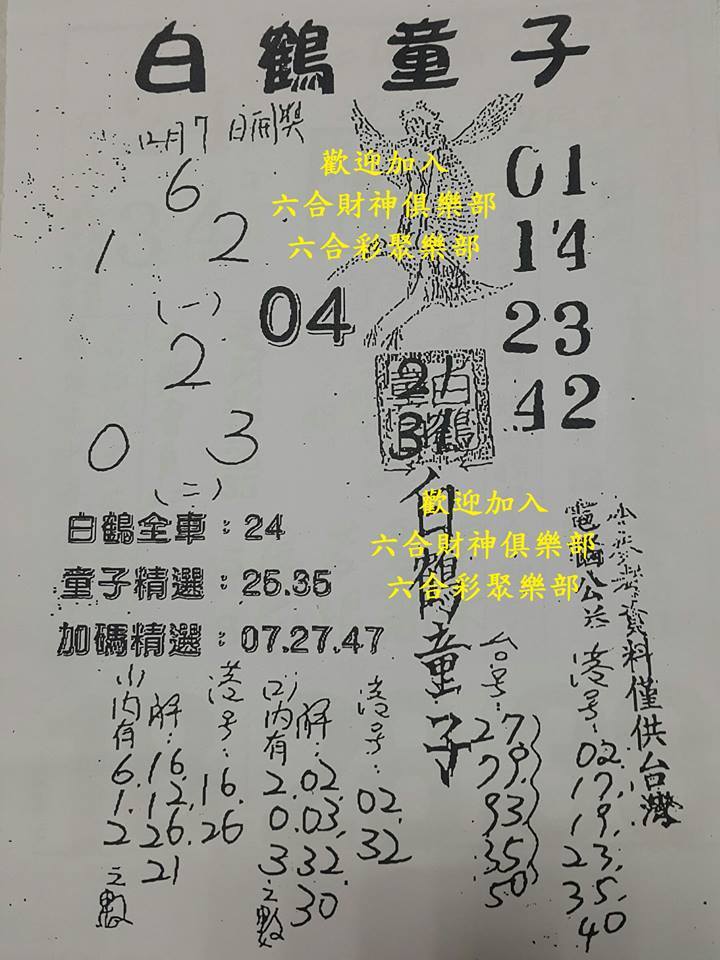 白鶴童子
12月7日開獎
歡迎加入
六合財神俱樂部
六合彩聚樂部
6
1 2
(一)
04
01
14
23
42
2
0 3
(二)
21
31
白鶴童子
白鶴童子
白鶴全車：24
童子精選：25.35
加碼精選：07.27.47
歡迎加入
六合財神俱樂部
六合彩聚樂部
(1)內有6.1.2之數
解：16.12.26.21
港号：16.26
(2)內有2.0.3之數
解：02.03.32.30
港号：02.32
台号：27.79.93.35.50
港号：02.17.19.23.35.40
資料僅供台灣